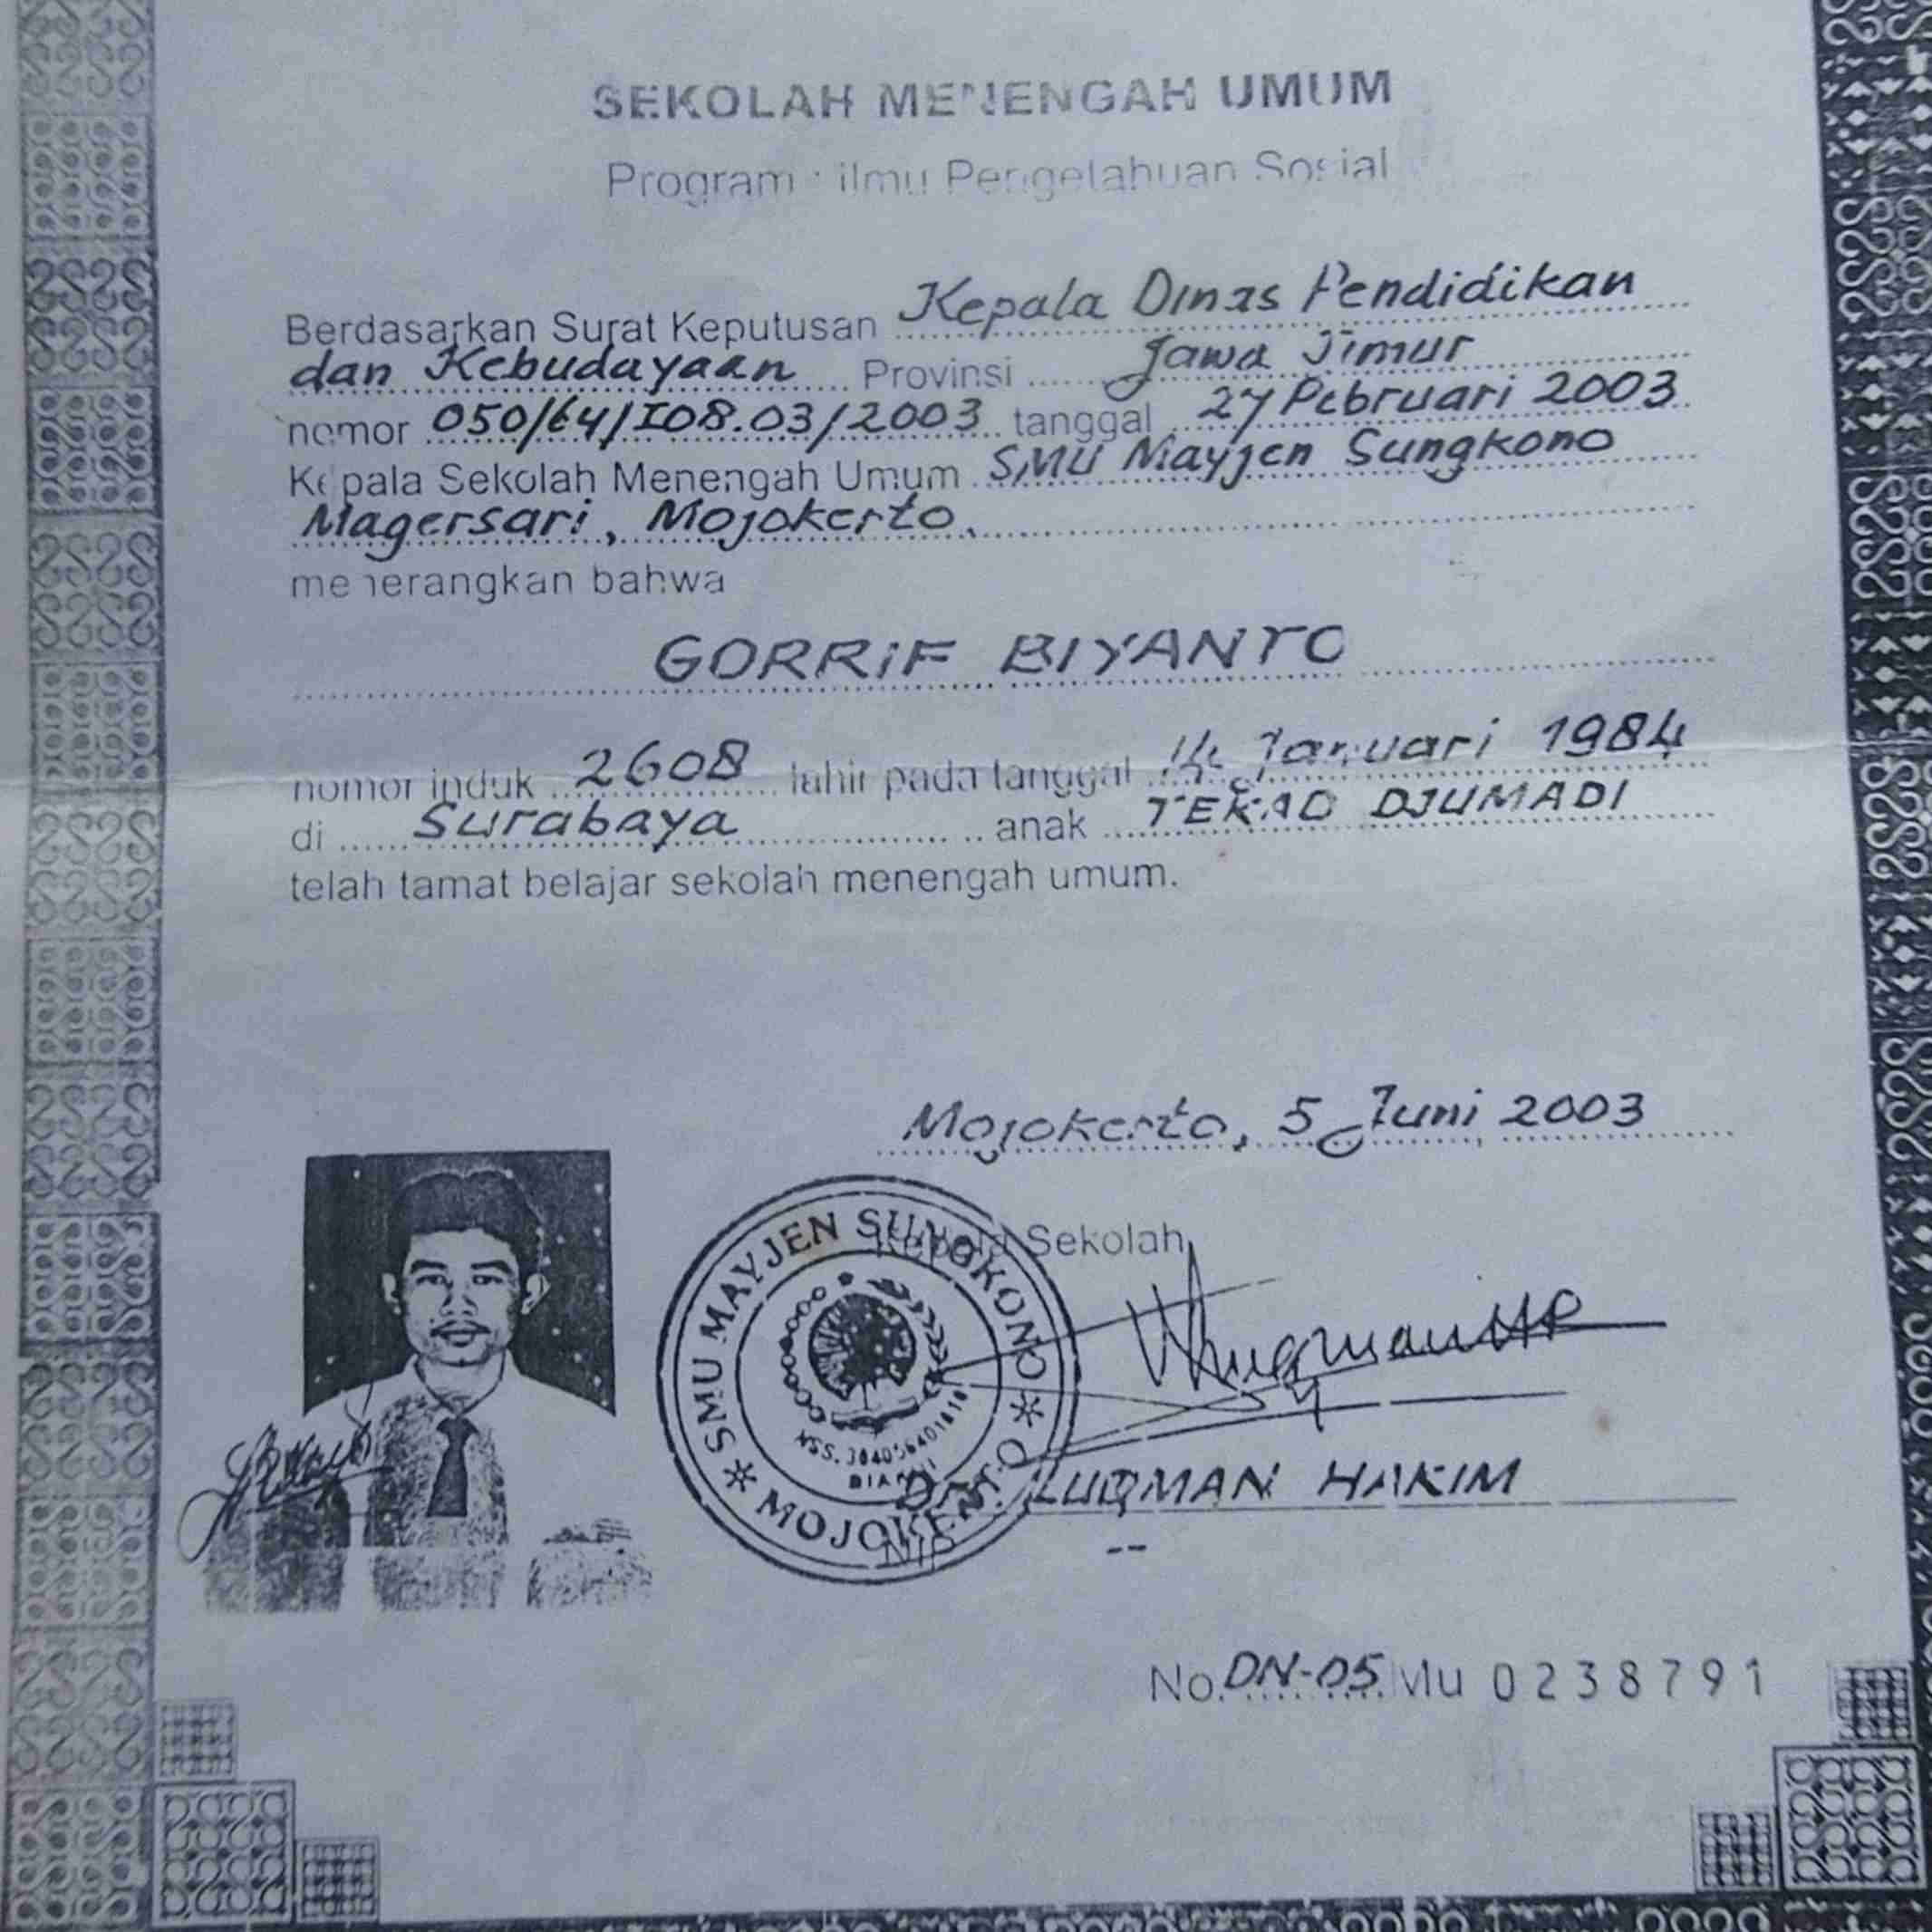 SEKOLAH MENENGAH UMUM
Program : Ilmu Pengetahuan Sosial
Berdasarkan Surat Keputusan Kepala Dinas Pendidikan
dan Kebudayaan Provinsi Jawa Timur
nomor 050/64/I08.03/2003 tanggal 27 Pebruari 2003
Kepala Sekolah Menengah Umum SMU Mayjen Sungkono
Magersari, Mojokerto.
menerangkan bahwa
GORRIF BIYANTO
nomor induk 2608 lahir pada tanggal 14 Januari 1984
di Surabaya anak TEKAD DJUMADI
telah tamat belajar sekolah menengah umum.
Mojokerto, 5 Juni 2003
Kepala Sekolah,
SMU MAYJEN SUNGKONO
MOJOKERTO
NSS.
Drs. LUQMAN HAKIM
NIP --
No. DN-05 Mu 0238791